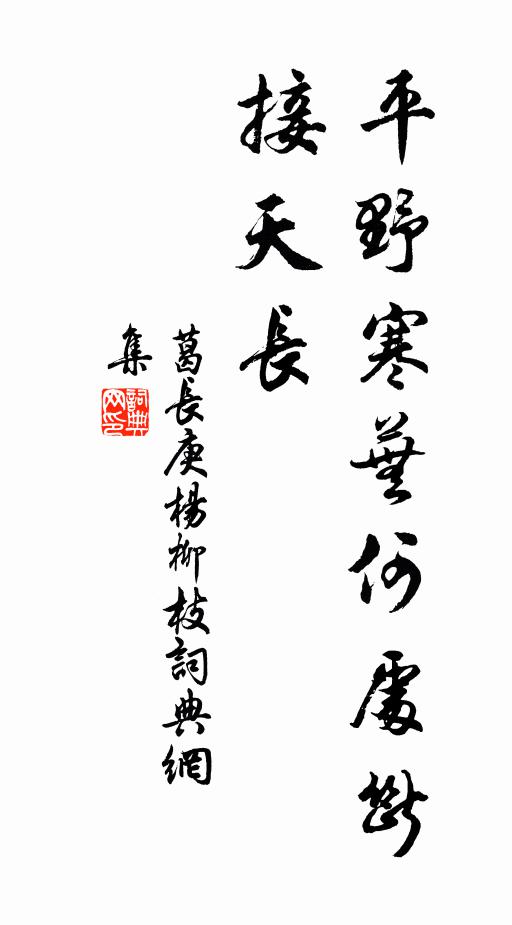 平野寒蕪何處斷
接天長
葛長庚楊柳枝詞典網
集
詞典
网印